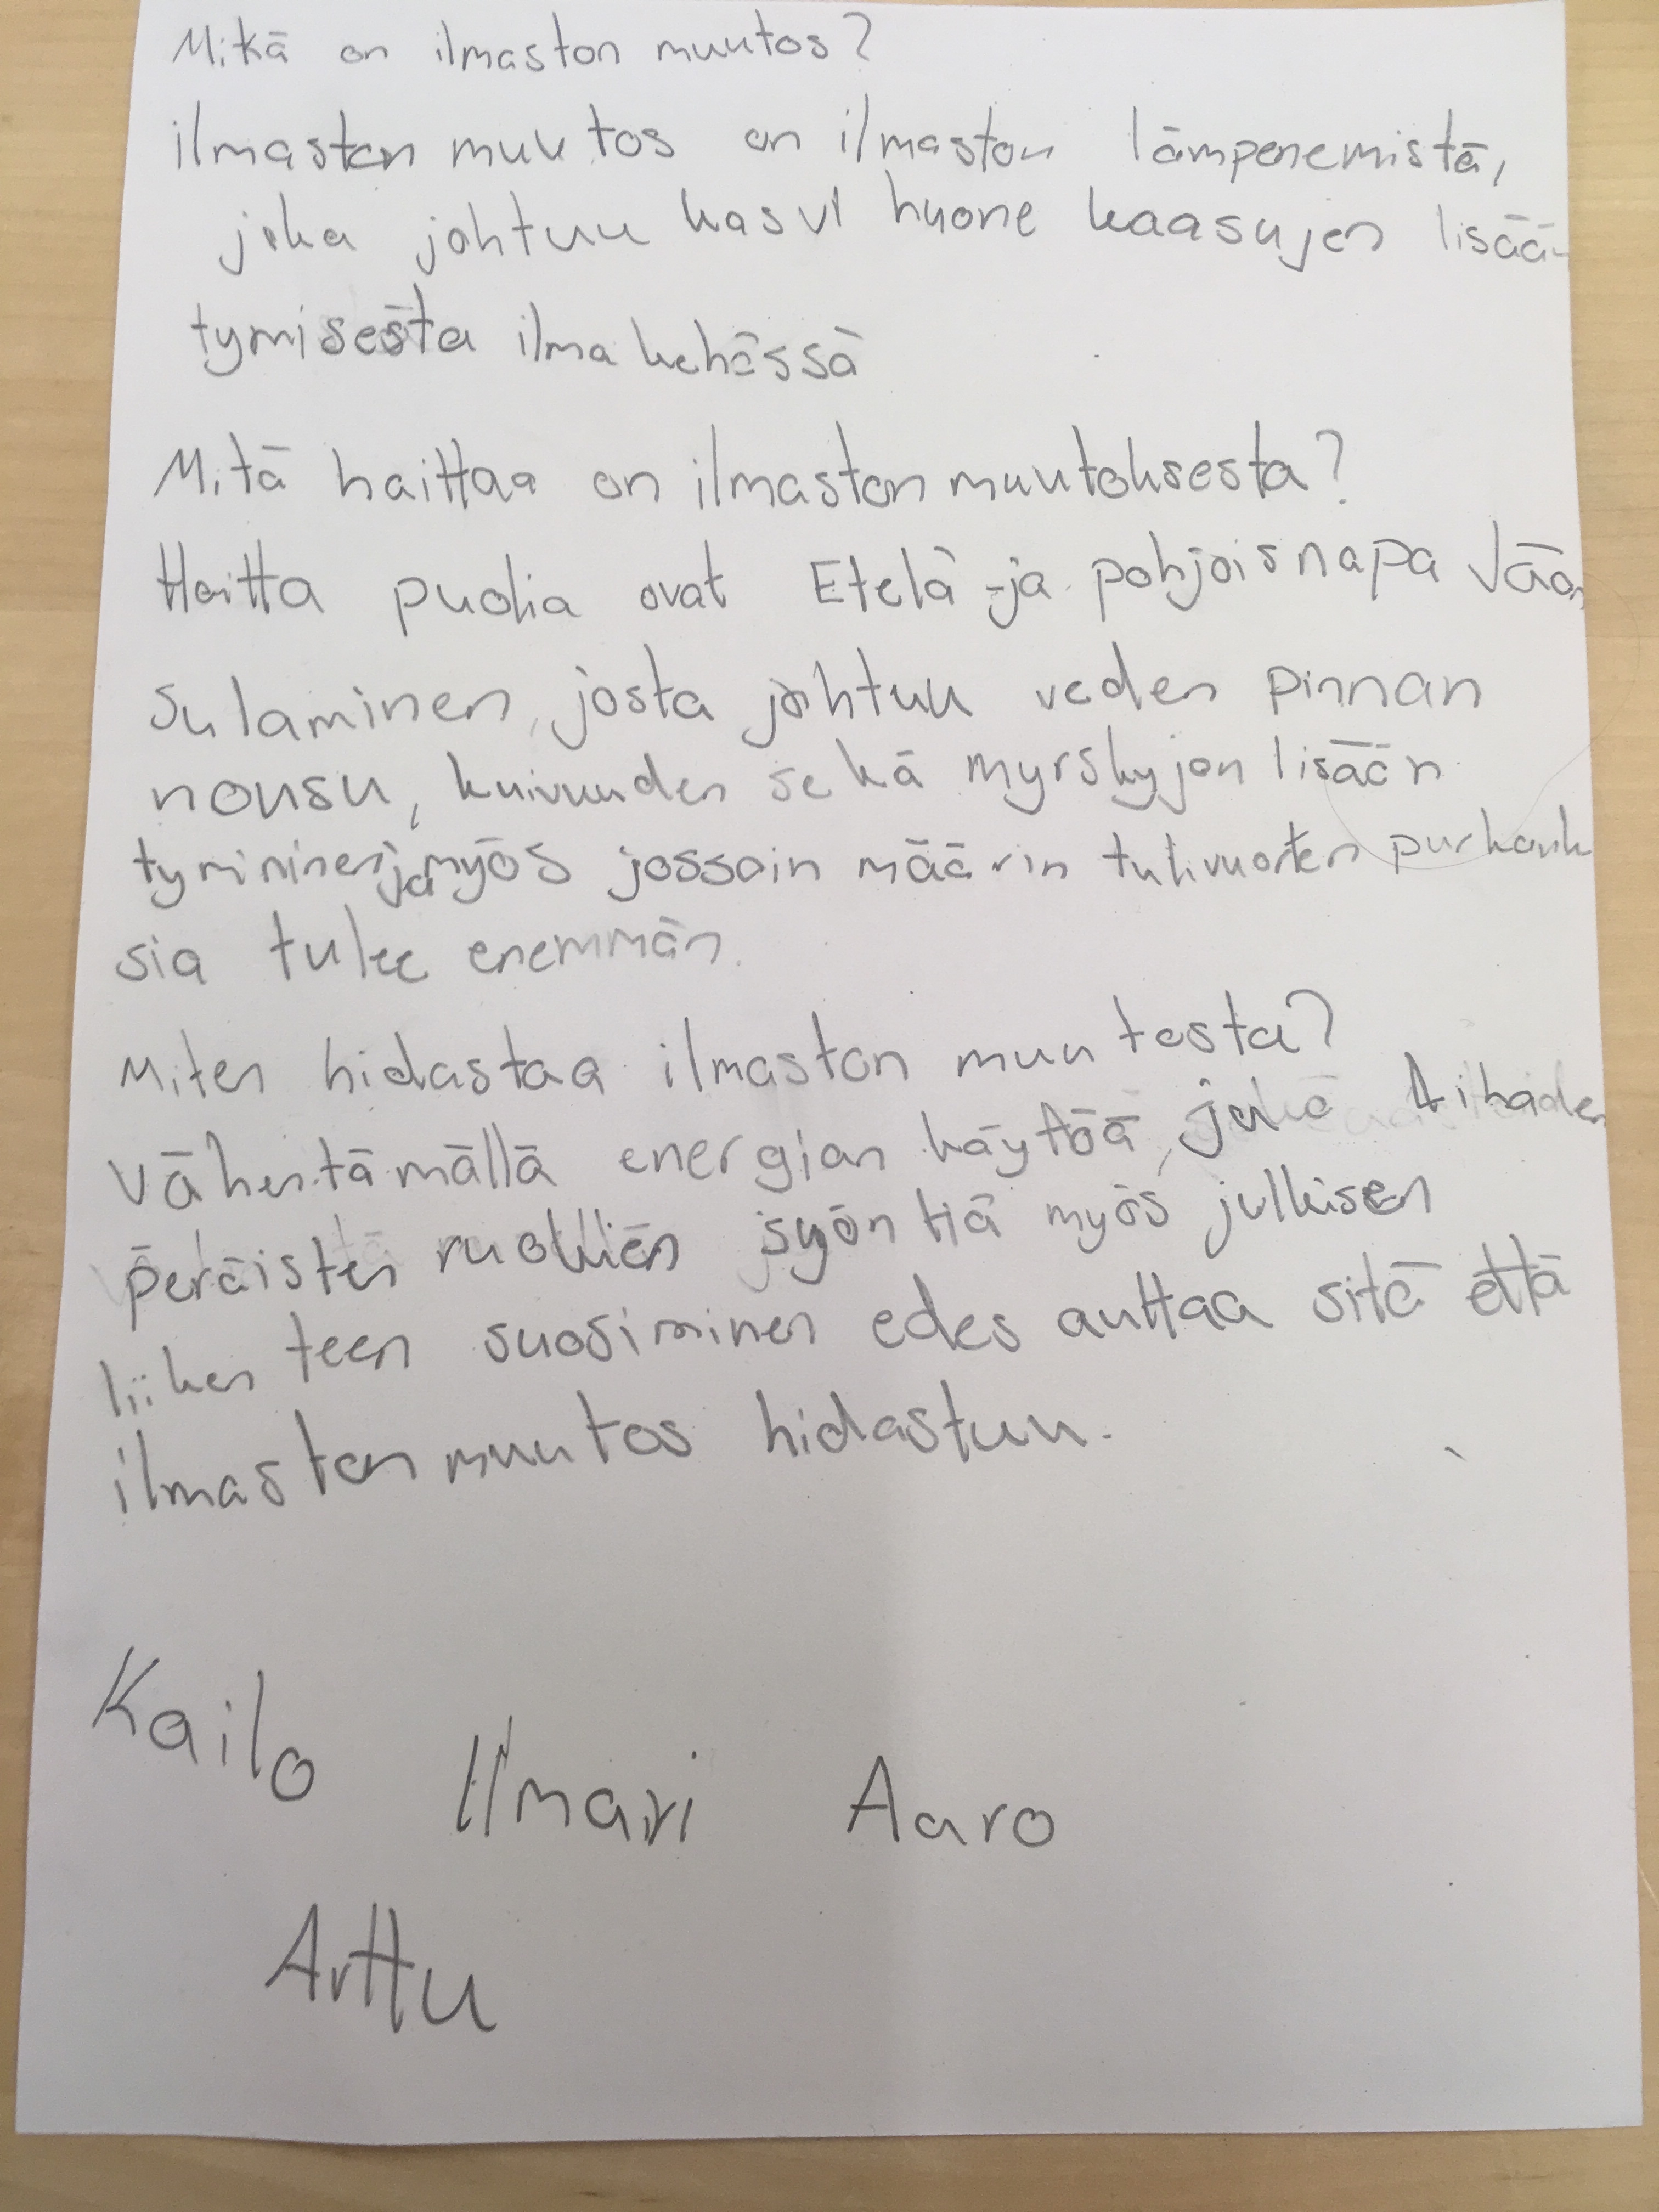 Mikä on ilmaston muutos?
ilmaston muutos on ilmaston lämpenemistä,
joka johtuu kasvi huone kaasujen lisää-
tymisestä ilma kehässä
Mitä haittaa on ilmaston muutoksesta?
Haitta puolia ovat Etelä -ja pohjoisnapa Jään
sulaminen, josta johtuu veden pinnan
nousu, kuivuuden sekä myrskyjen lisään
tymininen ja myös jossain määrin tulivuorten purkauk
sia tulee enemmän.
Miten hidastaa ilmaston muutosta?
Vähentämällä energian käytöä, jukä liha­den
peräisten ruokien syöntiä myös julkisen
liiken teen suosiminen edes auttaa sitä että
ilmaston muutos hidastuu.
Kailo
Ilmari Aaro
Arttu